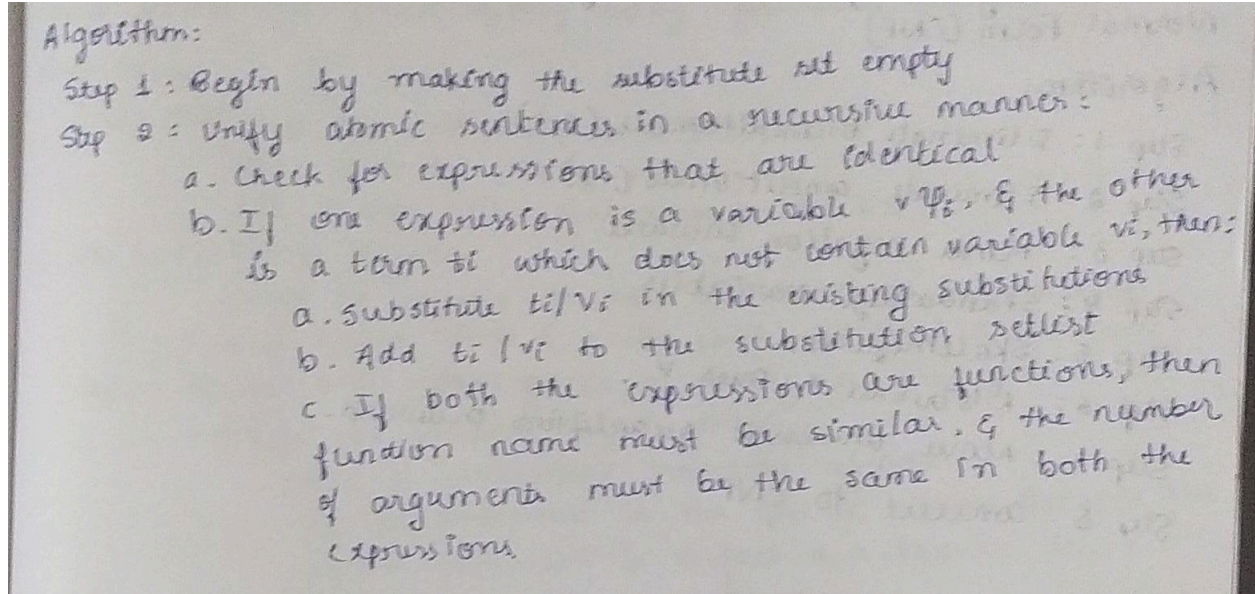 Algorithm:
Step 1: Begin by making the substitute set empty
Step 2: Unify atomic sentences in a recursive manner:
a. Check for expressions that are identical
b. If one expression is a variable vψi, & the other
is a term ti which does not contain variable vi, then:
a. Substitute ti/vi in the existing substitutions
b. Add ti/vi to the substitution setlist
c If both the expressions are functions, then
function name must be similar, & the number
of arguments must be the same in both the
expressions.